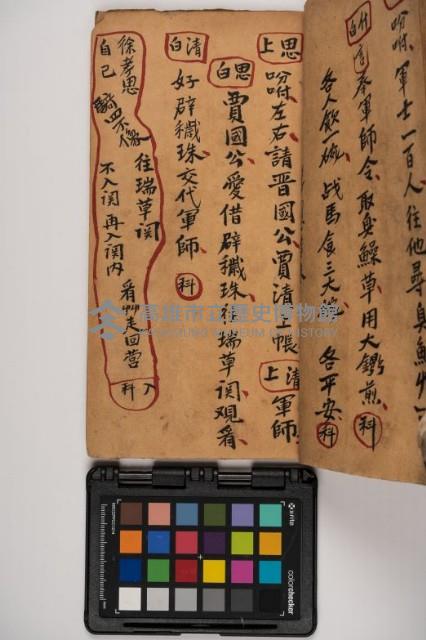 吩咐軍士一百人往他尋臭
奉軍師令取臭鰇草用大鑊煎科
各人飲一碗战馬食三大各平安科
思上吩咐左右請晋國公賈清上帳清上軍師
思白賈國公愛借辟穢珠瑞草洞观看
清白好辟穢珠交代軍師科
徐孝思自己騎四不像往瑞草洞
不入洞再入洞内看草走回营入科
高雄市立歷史博物館
KAOHSIUNG MUSEUM OF HISTORY
x-rite
colorchecker